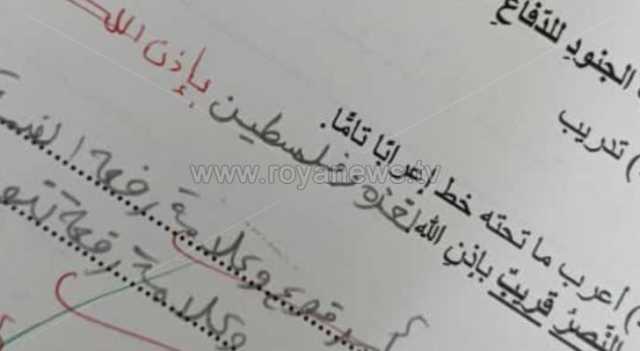 الجنودِ للدفاعِ
) تدريب
) أعرب ما تحته خط إعرابًا تامًّا.
النصرُ قريبٌ بإذنِ الله لغزه وفلسطين بإذن الله
مرفوع وعلامة رفعة الضمة
وعلامة رفعة تنو
www.royanews.tv